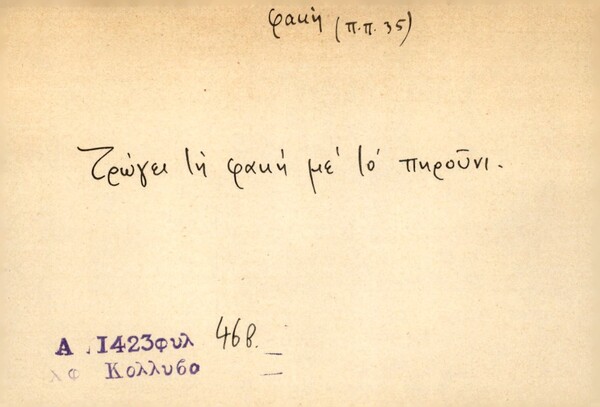 φακή (π.π. 35)
Τρώγει τή φακή μέ τό πηροῦνι.
Α. 1423 φυλ 46β.
λφ Κολλυβο